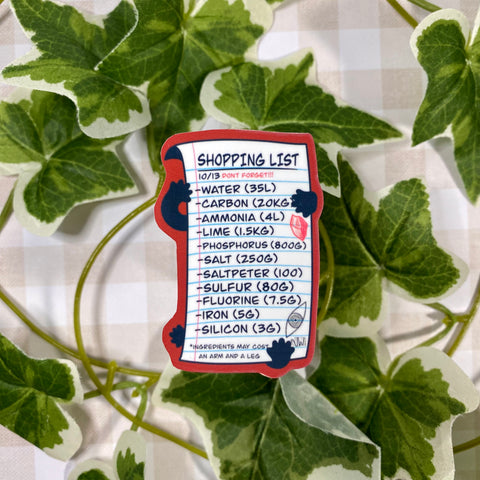 SHOPPING LIST
10/13 DONT FORGET!!!
-WATER (35L)
-CARBON (20KG)
-AMMONIA (4L)
-LIME (1.5KG)
-PHOSPHORUS (800G)
-SALT (250G)
-SALTPETER (100)
-SULFUR (80G)
-FLUORINE (7.5G)
-IRON (5G)
-SILICON (3G)
*INGREDIENTS MAY COST
AN ARM AND A LEG